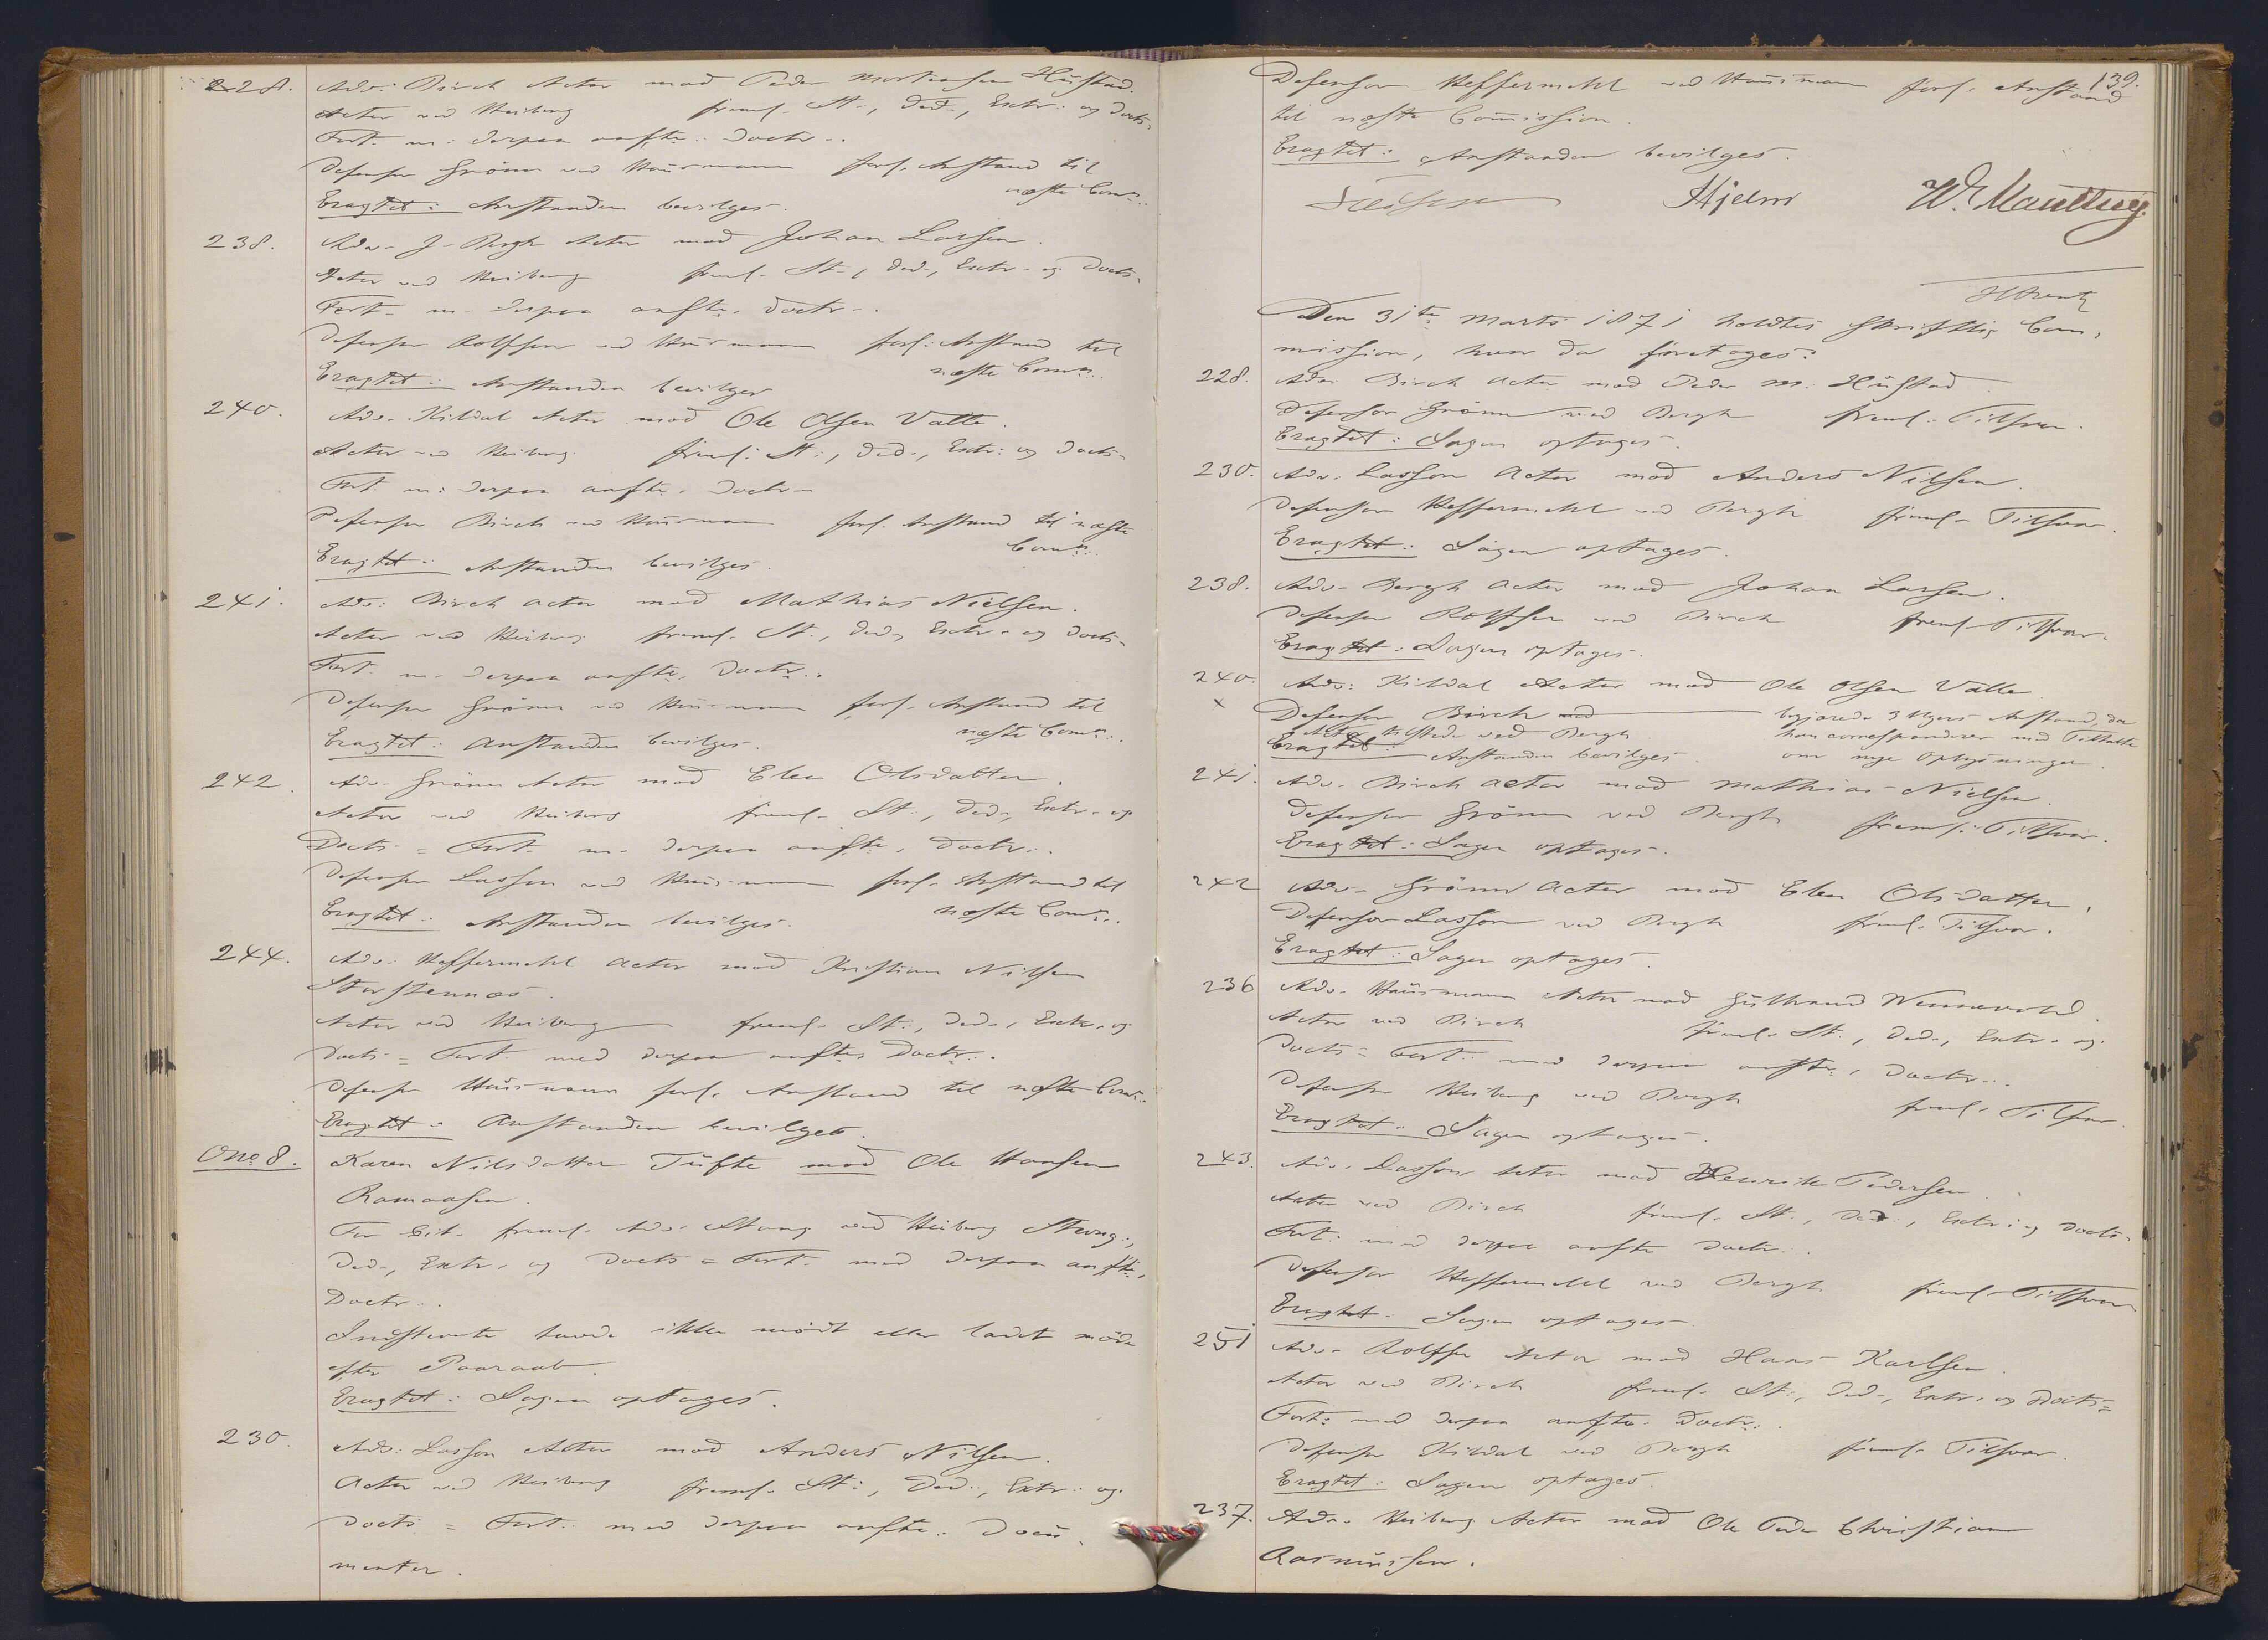 228. Adv. Birch Actor mod Peder Mortensen Hüstad.
Actor ved Heiberg freml. St., Ded., Extr. og Docts.
Fort. m: derpaa anfte. Doctr..
Defensor Grönn ved Hausmann forl. Anstand til
næste Comn..
Eragtet: Anstanden bevilges.
238. Adv. J. Bergh Actor mod Johan Larsen.
Actor ved Heiberg freml. St., Ded., Extr. og Docts.
Fort. m. derpaa anfte. Doctr..
Defensor Rolfsen ved Hausmann forl. Anstand til
næste Comn..
Eragtet: Anstanden bevilges
240. Adv. Kildal Actor mod Ole Olsen Valle.
Actor ved Heiberg freml. St., Ded., Extr. og Docts.
Fort. m: derpaa anfte. Doctr.
Defensor Birch ved Hausmann forl. Anstand til næste
Comn..
Eragtet: Anstanden bevilges.
241. Adv. Birch Actor mod Mathias Nielsen.
Actor ved Heiberg freml. St., Ded., Extr. og Docts.
Fort. m. derpaa anfte. Doctr..
Defensor Grönn ved Hausmann forl. Anstand til
næste Comn..
Eragtet: Anstanden bevilges.
242. Adv. Grönn Actor mod Elen Olsdatter.
Actor ved Heiberg freml. St., Ded., Extr. og
Docts = Fort. m. derpaa anfte. Doctr..
Defensor Lasson ved Hausmann forl. Anstand til
næste Comn..
Eragtet: Anstanden bevilges.
244. Adv. Heffermehl Actor mod Kristian Nilsen
Storstennæs.
Actor ved Heiberg freml. St., Ded., Extr. og
Docts = Fort. med derpaa anfte. Doctr..
Defensor Hausmann forl. Anstand til næste Comn.
Eragtet: Anstanden bevilges.
Ono 8. Karen Nilsdatter Tüfte mod Ole Hansen
Ramaasen.
For Cit. freml. Adv. Stang ved Heiberg Stevng.,
Ded., Extr. og Docts = Fort. med derpaa anfte.
Doctr..
Indstevnte havde ikke mödt eller ladet möde
efter Paaraab.
Eragtet: Sagen optages.
230. Adv. Lasson Actor mod Anders Nilsen.
Actor ved Heiberg freml. St., Ded., Extr. og
Docts = Fort. med derpaa anfte. Docu
menter.
139.
Defensor Heffermehl ved Hausmann forl. Anstand
til næste Commission.
Eragtet: Anstanden bevilges.
Hjelm
Den 31te Marts 1871 holdtes skriftlig Com
mission, hvor da foretoges:
228. Adv. Birch Actor mod Peder M. Hüstad.
Defensor Grönn ved Bergh freml. Tilsvar.
Eragtet: Sagen optages.
230. Adv. Lasson Actor mod Anders Nilsen.
Defensor Heffermehl ved Bergh freml. Tilsvar.
Eragtet: Sagen optages.
238. Adv. Bergh Actor mod Johan Larsen.
Defensor Rolfsen ved Birch freml. Tilsvar.
Eragtet: Sagen optages.
240. Adv. Kildal Actor mod Ole Olsen Valle.
x Defensor Birch ved begjærede 3 Ugers Anstand, da
Actor tilstede ved Bergh han corresponderer med Tiltalte
Eragtet: Anstanden bevilges. om nye Oplysninger.
241. Adv. Birch Actor mod Mathias Nielsen.
Defensor Grönn ved Bergh freml. Tilsvar.
Eragtet: Sagen optages.
242 Adv. Grönn Actor mod Elen Olsdatter.
Defensor Lasson ved Bergh freml. Tilsvar.
Eragtet: Sagen optages.
236 Adv. Hausmann Actor mod Gulbrand Wennevold.
Actor ved Birch freml. St., Ded., Extr. og
Docts = Fort. med derpaa anfte. Doctr..
Defensor Heiberg ved Bergh freml. Tilsvar.
Eragtet: Sagen optages.
243. Adv. Lasson Actor mod Henrik Pedersen.
Actor ved Birch freml. St., Ded., Extr. og Docts.
Fort. med derpaa anfte Doctr..
Defensor Heffermehl ved Bergh freml. Tilsvar
Eragtet: Sagen optages.
251 Adv. Rolfsen Actor mod Hans Karlsen.
Actor ved Birch freml. St., Ded., Extr. og Docts =
Fort. med derpaa anfte. Doctr..
Defensor Kildal ved Bergh freml. Tilsvar.
Eragtet: Sagen optages.
237. Adv. Heiberg Actor mod Ole Peder Christian
Rasmüssen.